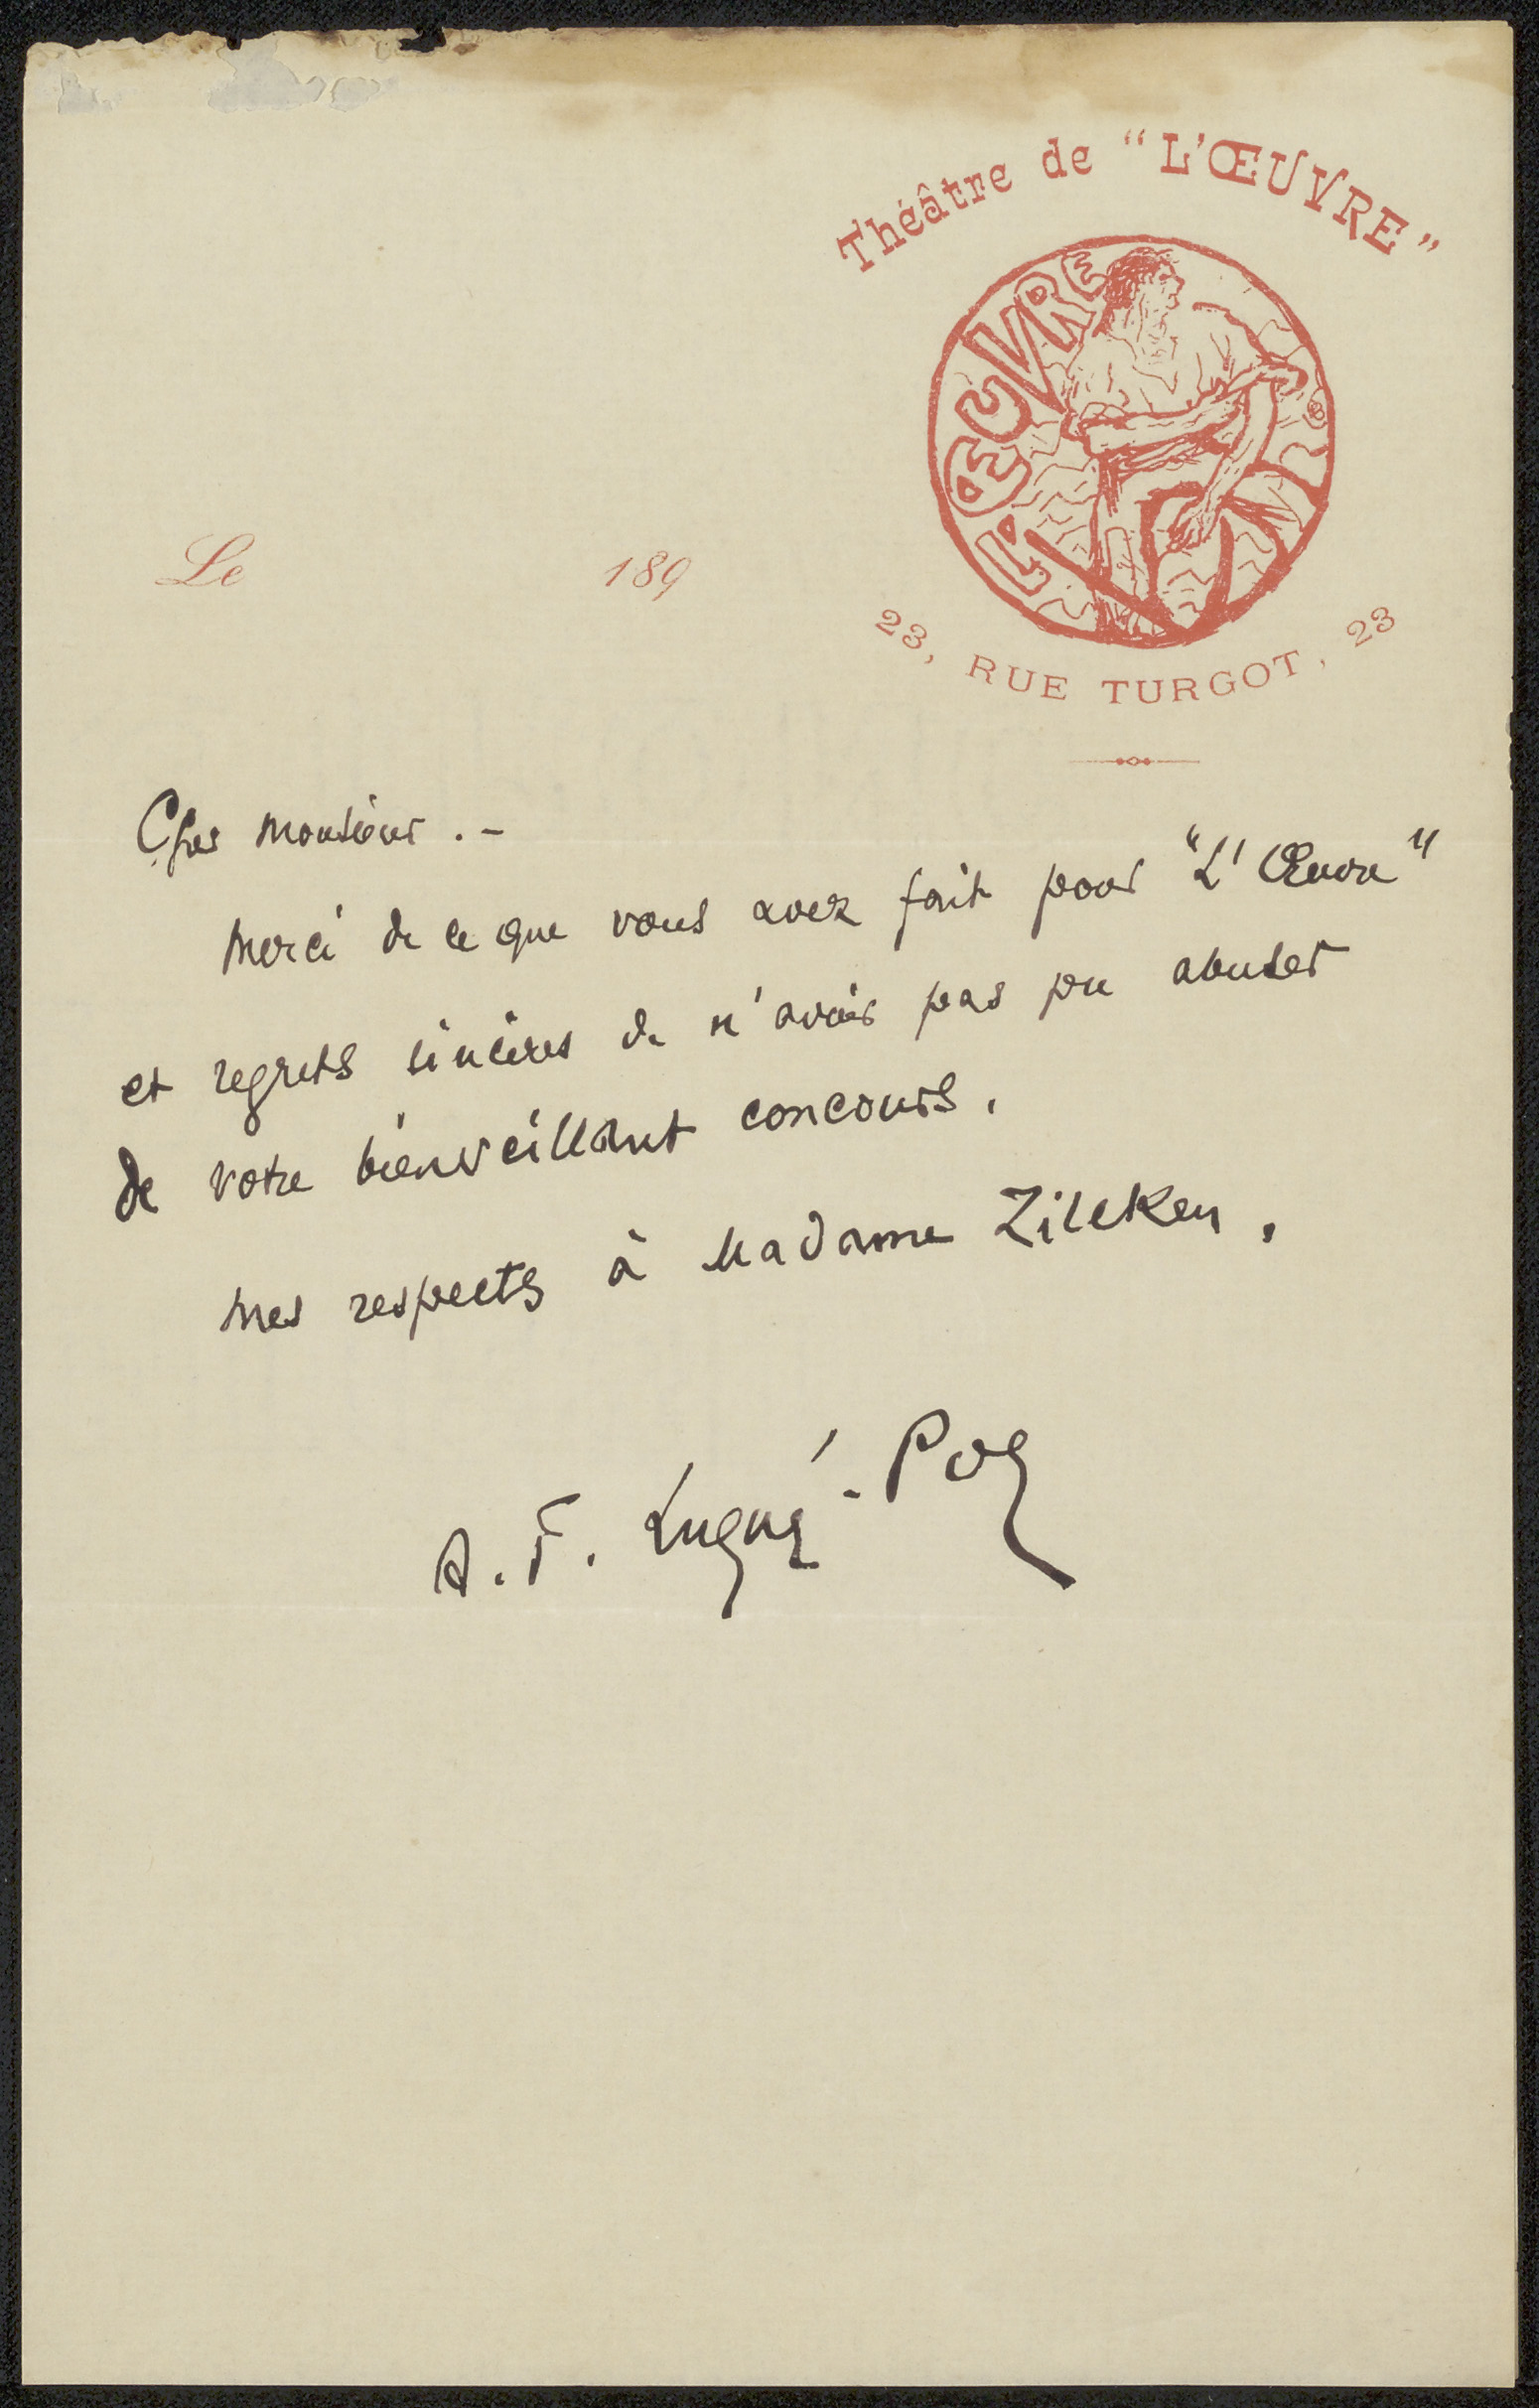 Théâtre de "L'ŒUVRE"
L'ŒUVRE
23, RUE TURGOT, 23
Le 189
Cher Monsieur . -
Merci de ce que vous avez fait pour "L'Œuvre"
et regrets sincères de n'avoir pas pu abuser
de votre bienveillant concours.
Mes respects à Madame Zilcken.
A. F. Lugné-Poe